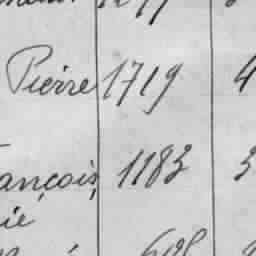 Pierre 1719 4
ançois, 1183 3
ie